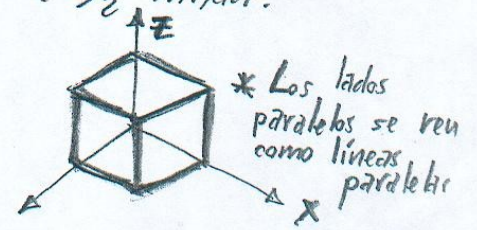 Z
* Los lados
paralelos se ven
como líneas
paralelas
X